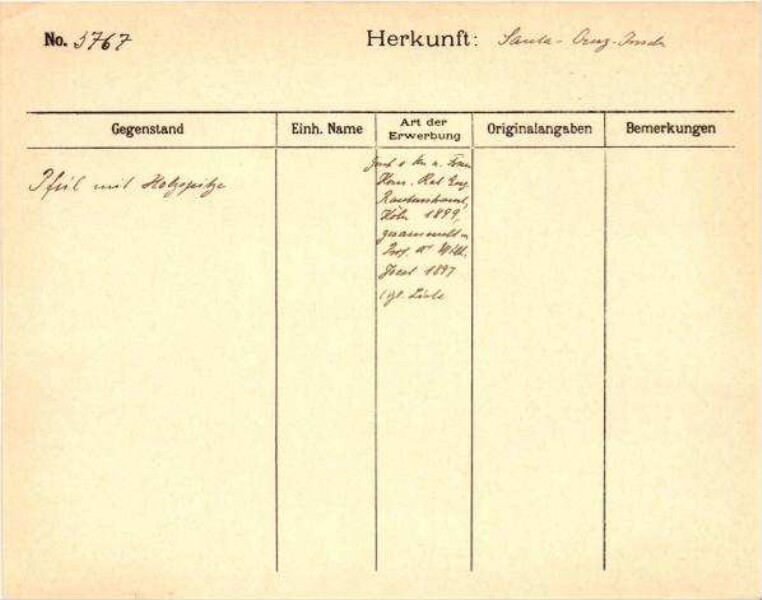 No. 3767 Herkunft: Santa-Cruz-Inseln
Gegenstand
Einh. Name
Art der
Erwerbung
Originalangaben
Bemerkungen
Pfeil mit Holzspitze
Gesch v. Hn u. Frau
Kom. Rat Eug.
Rautenstrauch,
Köln 1899,
gesammelt v.
Prof. Dr Wilh.
Joest 1897
(gl. Liste